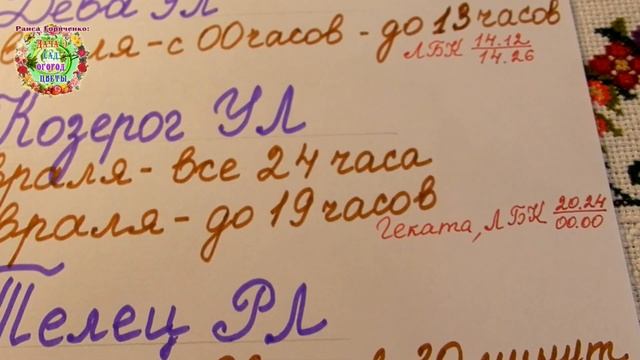 Раиса Горяченко:
ДАЧА
САД
ОГОРОД
ЦВЕТЫ
Дева УЛ
враля - с 00 часов - до 13 часов
ЛБК 14.12
14.26
Козерог УЛ
враля - все 24 часа
враля - до 19 часов
Геката, ЛБК 20.24
00.00
Телец РЛ